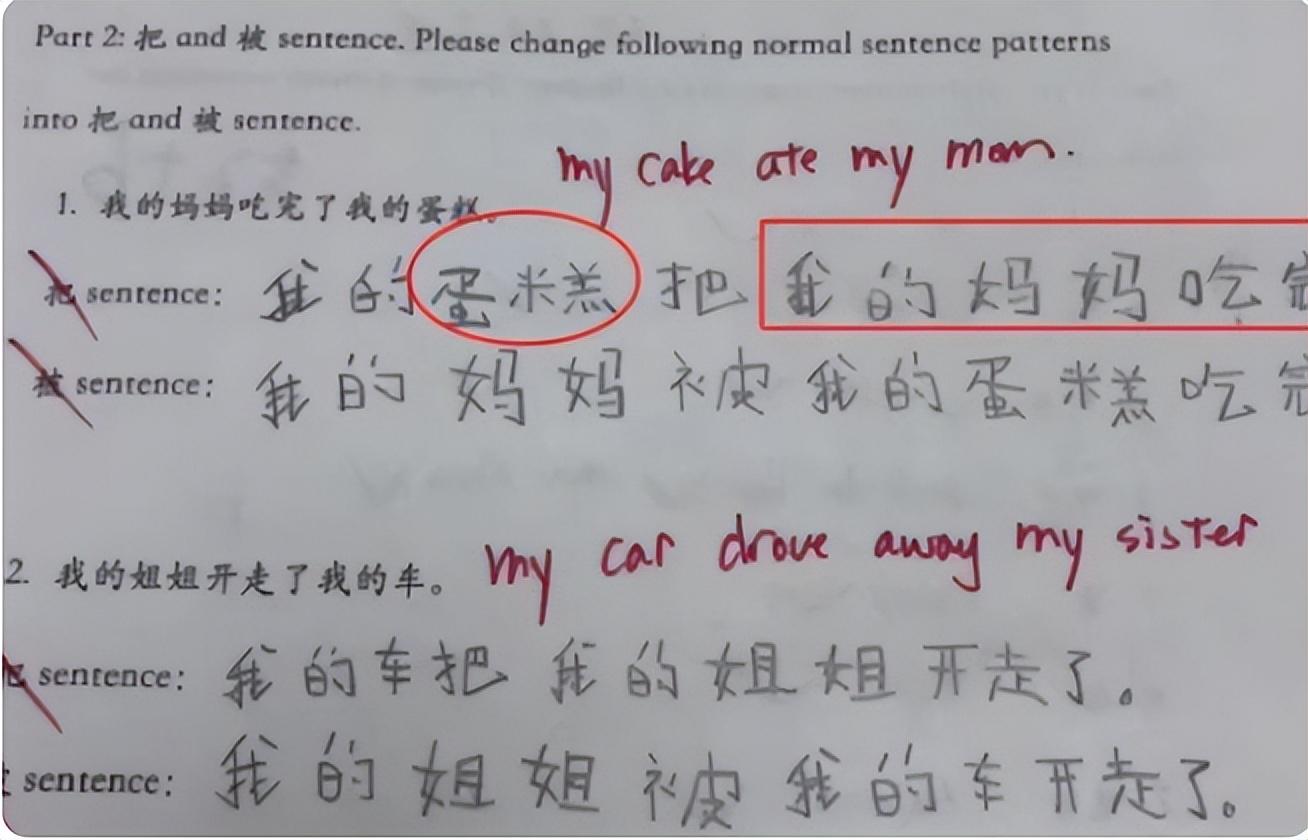 Part 2: 把 and 被 sentence. Please change following normal sentence patterns
into 把 and 被 sentence.
my cake ate my mom.
1. 我的妈妈吃完了我的蛋糕。
把 sentence: 我的蛋糕把我的妈妈吃完
被 sentence: 我的妈妈被我的蛋糕吃完
my car drove away my sister
2. 我的姐姐开走了我的车。
把 sentence: 我的车把我的姐姐开走了。
sentence: 我的姐姐被我的车开走了。